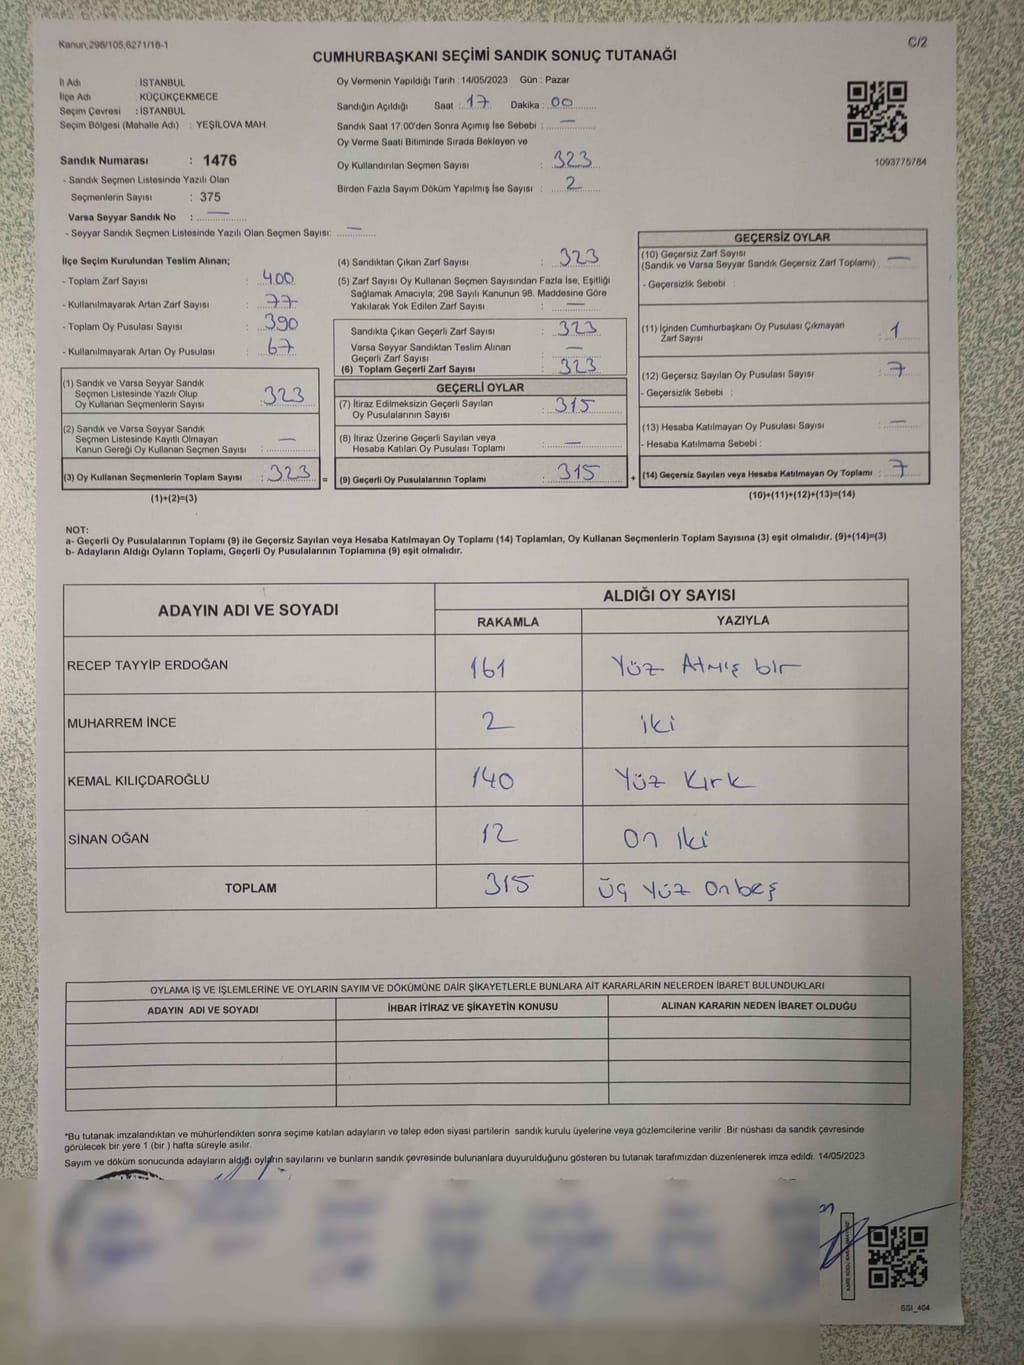 Kanun,298/105,6271/18-1
C/2
CUMHURBAŞKANI SEÇİMİ SANDIK SONUÇ TUTANAĞI
İl Adı : İSTANBUL
İlçe Adı : KÜÇÜKÇEKMECE
Seçim Çevresi : İSTANBUL
Seçim Bölgesi (Mahalle Adı) : YEŞİLOVA MAH.
Sandık Numarası : 1476
- Sandık Seçmen Listesinde Yazılı Olan
Seçmenlerin Sayısı : 375
Varsa Seyyar Sandık No : —
- Seyyar Sandık Seçmen Listesinde Yazılı Olan Seçmen Sayısı: —
Oy Vermenin Yapıldığı Tarih : 14/05/2023 Gün : Pazar
Sandığın Açıldığı Saat : 17 Dakika : 00
Sandık Saat 17:00'den Sonra Açımış İse Sebebi : —
Oy Verme Saati Bitiminde Sırada Bekleyen ve
Oy Kullandırılan Seçmen Sayısı : 323
Birden Fazla Sayım Döküm Yapılmış İse Sayısı : 2
1093775784
İlçe Seçim Kurulundan Teslim Alınan;
- Toplam Zarf Sayısı : 400
- Kullanılmayarak Artan Zarf Sayısı : 77
- Toplam Oy Pusulası Sayısı : 390
- Kullanılmayarak Artan Oy Pusulası : 67
(1) Sandık ve Varsa Seyyar Sandık
Seçmen Listesinde Yazılı Olup
Oy Kullanan Seçmenlerin Sayısı : 323
(2) Sandık ve Varsa Seyyar Sandık
Seçmen Listesinde Kayıtlı Olmayan
Kanun Gereği Oy Kullanan Seçmen Sayısı : —
(3) Oy Kullanan Seçmenlerin Toplam Sayısı : 323 =
(1)+(2)=(3)
(4) Sandıktan Çıkan Zarf Sayısı : 323
(5) Zarf Sayısı Oy Kullanan Seçmen Sayısından Fazla İse, Eşitliği
Sağlamak Amacıyla; 298 Sayılı Kanunun 98. Maddesine Göre
Yakılarak Yok Edilen Zarf Sayısı : —
Sandıkta Çıkan Geçerli Zarf Sayısı : 323
Varsa Seyyar Sandıktan Teslim Alınan
Geçerli Zarf Sayısı : —
(6) Toplam Geçerli Zarf Sayısı : 323
GEÇERLİ OYLAR
(7) İtiraz Edilmeksizin Geçerli Sayılan
Oy Pusulalarının Sayısı : 315
(8) İtiraz Üzerine Geçerli Sayılan veya
Hesaba Katılan Oy Pusulası Toplamı : —
(9) Geçerli Oy Pusulalarının Toplamı : 315 +
GEÇERSİZ OYLAR
(10) Geçersiz Zarf Sayısı
(Sandık ve Varsa Seyyar Sandık Geçersiz Zarf Toplamı) : —
- Geçersizlik Sebebi :
(11) İçinden Cumhurbaşkanı Oy Pusulası Çıkmayan
Zarf Sayısı : 1
(12) Geçersiz Sayılan Oy Pusulası Sayısı : 7
- Geçersizlik Sebebi :
(13) Hesaba Katılmayan Oy Pusulası Sayısı : —
- Hesaba Katılmama Sebebi :
(14) Geçersiz Sayılan veya Hesaba Katılmayan Oy Toplamı : 7
(10)+(11)+(12)+(13)=(14)
NOT:
a- Geçerli Oy Pusulalarının Toplamı (9) ile Geçersiz Sayılan veya Hesaba Katılmayan Oy Toplamı (14) Toplamları, Oy Kullanan Seçmenlerin Toplam Sayısına (3) eşit olmalıdır. (9)+(14)=(3)
b- Adayların Aldığı Oyların Toplamı, Geçerli Oy Pusulalarının Toplamına (9) eşit olmalıdır.
ADAYIN ADI VE SOYADI ALDIĞI OY SAYISI
RAKAMLA YAZIYLA
RECEP TAYYİP ERDOĞAN 161 Yüz Atmış bir
MUHARREM İNCE 2 iki
KEMAL KILIÇDAROĞLU 140 Yüz Kırk
SİNAN OĞAN 12 On iki
TOPLAM 315 Üç Yüz Onbeş
OYLAMA İŞ VE İŞLEMLERİNE VE OYLARIN SAYIM VE DÖKÜMÜNE DAİR ŞİKAYETLERLE BUNLARA AİT KARARLARIN NELERDEN İBARET BULUNDUKLARI
ADAYIN ADI VE SOYADI İHBAR İTİRAZ VE ŞİKAYETİN KONUSU ALINAN KARARIN NEDEN İBARET OLDUĞU
*Bu tutanak imzalandıktan ve mühürlendikten sonra seçime katılan adayların ve talep eden siyasi partilerin sandık kurulu üyelerine veya gözlemcilerine verilir .Bir nüshası da sandık çevresinde
görülecek bir yere 1 (bir ) hafta süreyle asılır.
Sayım ve döküm sonucunda adayların aldığı oyların sayılarını ve bunların sandık çevresinde bulunanlara duyurulduğunu gösteren bu tutanak tarafımızdan düzenlenerek imza edildi. 14/05/2023
SGI_404